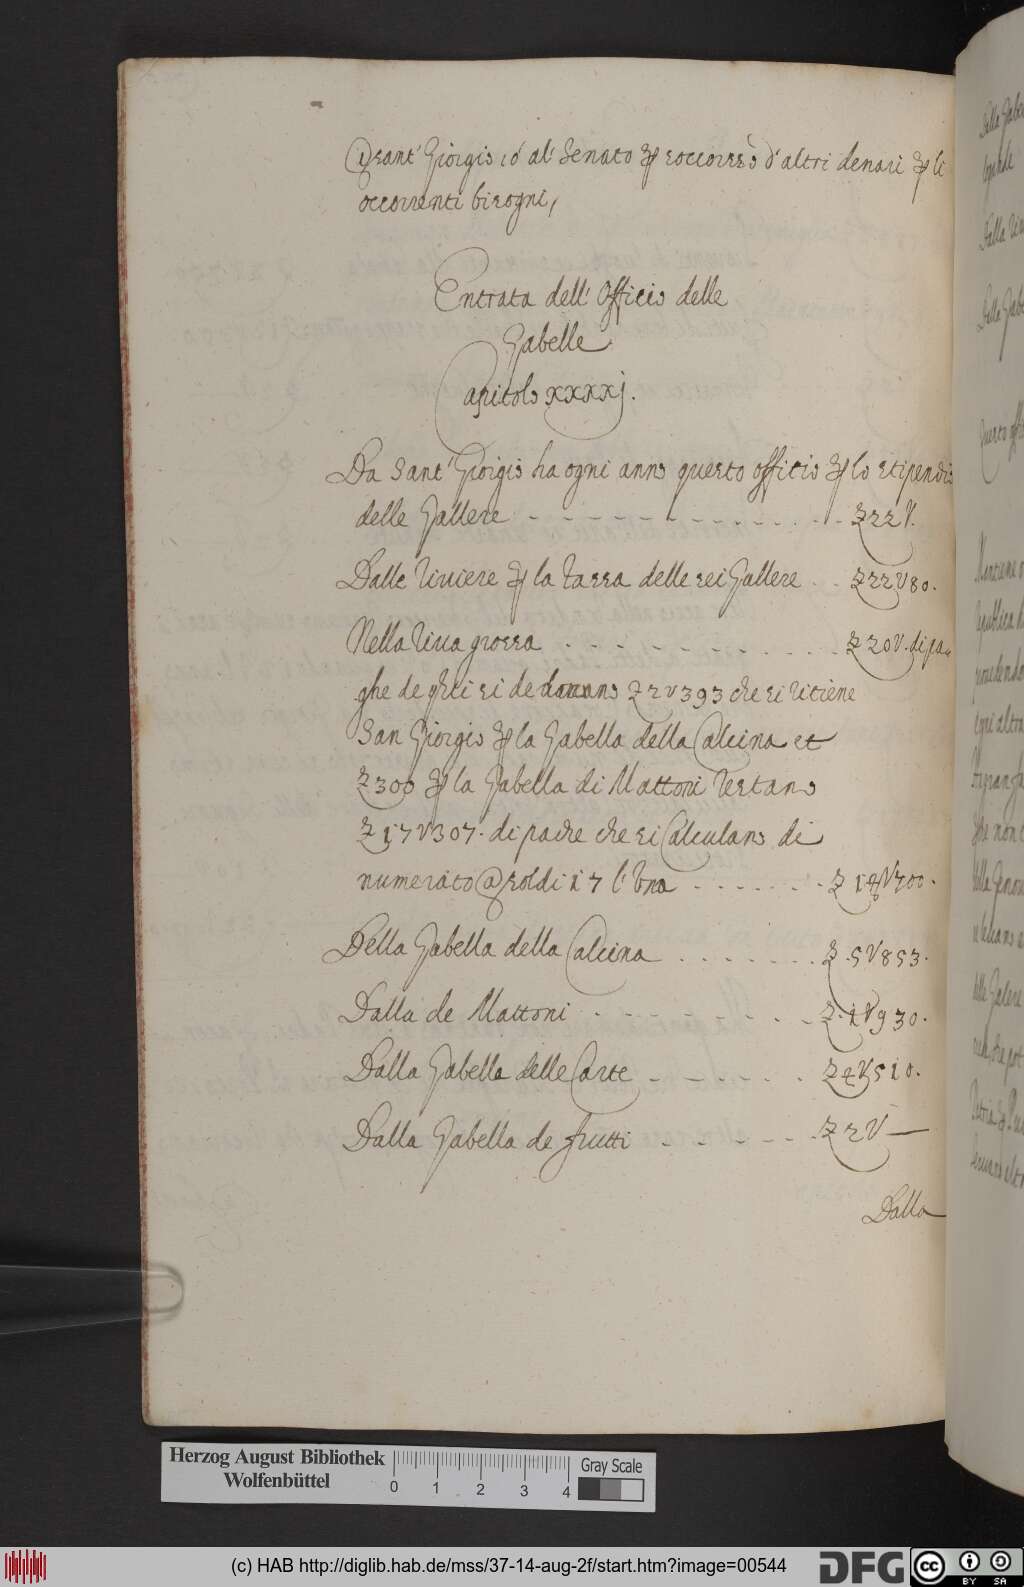 @ sant' Giorgio, o' al' Senato per soccorrerlo d'altri denari per li
occorrenti bisogni,
Entrata dell' Officio delle
Gabelle
Capitolo xxxxj.
Da Sant' Giorgio ha ogni anno questo offitio per lo stipendio
delle Gallere - - - - - - - - £ 22 V.
Dalle Riviere per la tassa delle sei Gallere . . £ 22 V 80.
Nella Riva grossa . . . . . . . . . £ 20 V. di pa=
ghe de si de £ 2 V 393 che si ritiene
San Giorgio per la Gabella della Calcina et
£ 300 per la Gabella di Mattoni restano
£ 17 V 307. di paghe che si Calculano di
numerato @ soldi 17 l' una . . . . . . £ V 700.
Della Gabella della Calcina . . . . . . . £ .5 V 853.
Dalla de Mattoni - - - - - - - £ . 1 V 930.
Dalla Gabella delle Carte - - - - - - £ 4 V 510.
Dalla Gabella de frutti - - - - - - £ 2 V —
Dalla
Herzog August Bibliothek
Wolfenbüttel
0 1 2 3 4
Gray Scale
(c) HAB http://diglib.hab.de/mss/37-14-aug-2f/start.htm?image=00544
DFG
cc BY SA